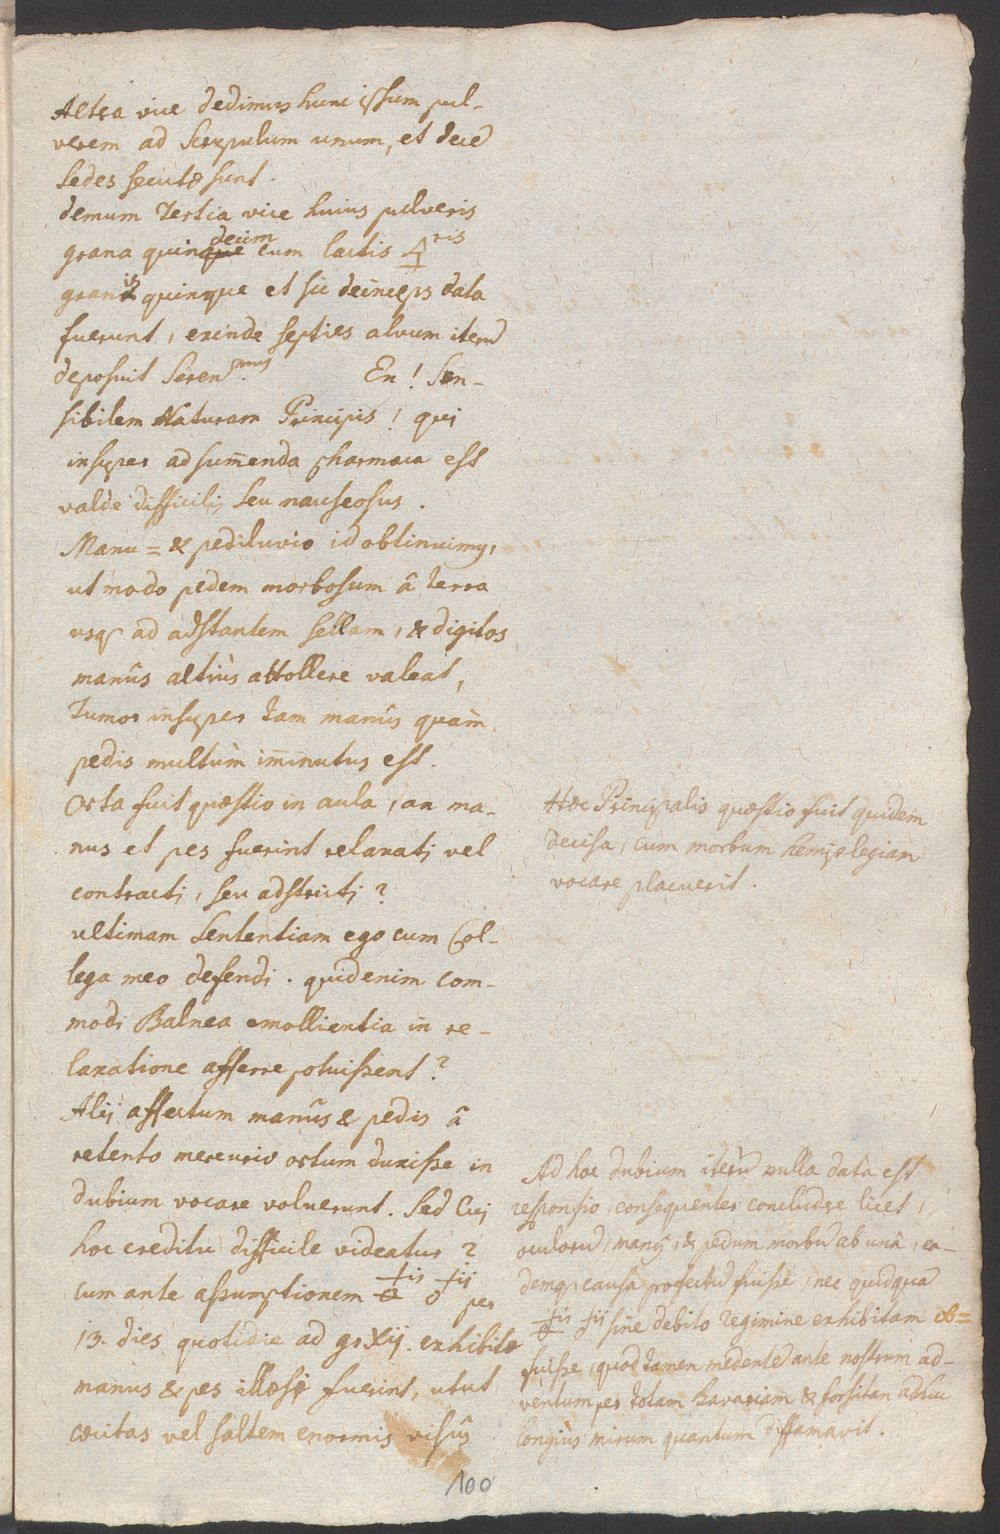 Altera vice dedimus hunc ipsum pul-
verem ad scrupulum unum, et decē
sedes secutæ sunt.
demum tertia vice huius pulveris
grana quinque decim cum lactis 🜍ris
granis quinque et sic deinceps data
fuerunt, exinde septies alvum iterū
deposuit Seren.mus En! Sen-
sibilem Naturam Principis! qui
insuper ad sum̄enda pharmaca est
valde difficilis seu nauseosus.
Manu = & pediluvio id obtinuimus,
ut modo pedem morbosum â terra
usq ad adstantem sellam, & digitos
manûs altiùs attollere valeat,
Tumor insuper tam manûs quàm
pedis multùm im̄inutus est.
Orta fuit quæstio in aula, an ma-
nus et pes fuerint relaxati vel
contracti, seu adstricti?
ultimam sententiam ego cum Col-
lega meo defendi. quid enim com-
modi Balnea emollientia in re-
laxatione afferre potuissent?
Alij affectum manûs & pedis â
retento mercurio ortum duxisse in
dubium vocare voluerunt. Sed Cui
hoc creditu difficile videatur?
cum ante assumptionem per
13. dies quotidie ad gr. Xij. exhibitæ
manus & pes illæsi fuerint, utut
cæcitas vel saltem enormis visûs
Hæc Principalis quæstio fuit quidem
decisa, cum morbum hemiplegiam
vocare placuerit.
Ad hoc dubium iterū nulla data est
responsio, consequenter concludere licet,
oculorū, manus, & pedum morbū ab unâ, ea-
demq causa profectū fuisse, nec quidquā
sine debito regimine exhibitam ob=
fuisse, quod tamen medente ante nostrum ad-
ventum per totam Bavariam & forsitan adhuc
longiùs mirum quantum diffamavit.
100